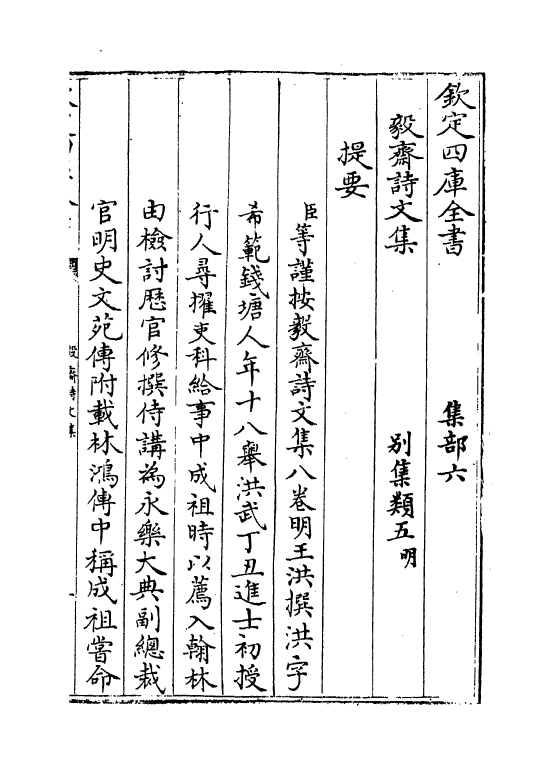 欽定四庫全書　集部六
毅齋詩文集　別集類五明
提要
臣等謹按毅齋詩文集八卷明王洪撰洪字
希範錢塘人年十八舉洪武丁丑進士初授
行人尋擢吏科給事中成祖時以薦入翰林
由檢討歷官修撰侍講為永樂大典副總裁
官明史文苑傳附載林鴻傳中稱成祖嘗命
毅齋詩文集